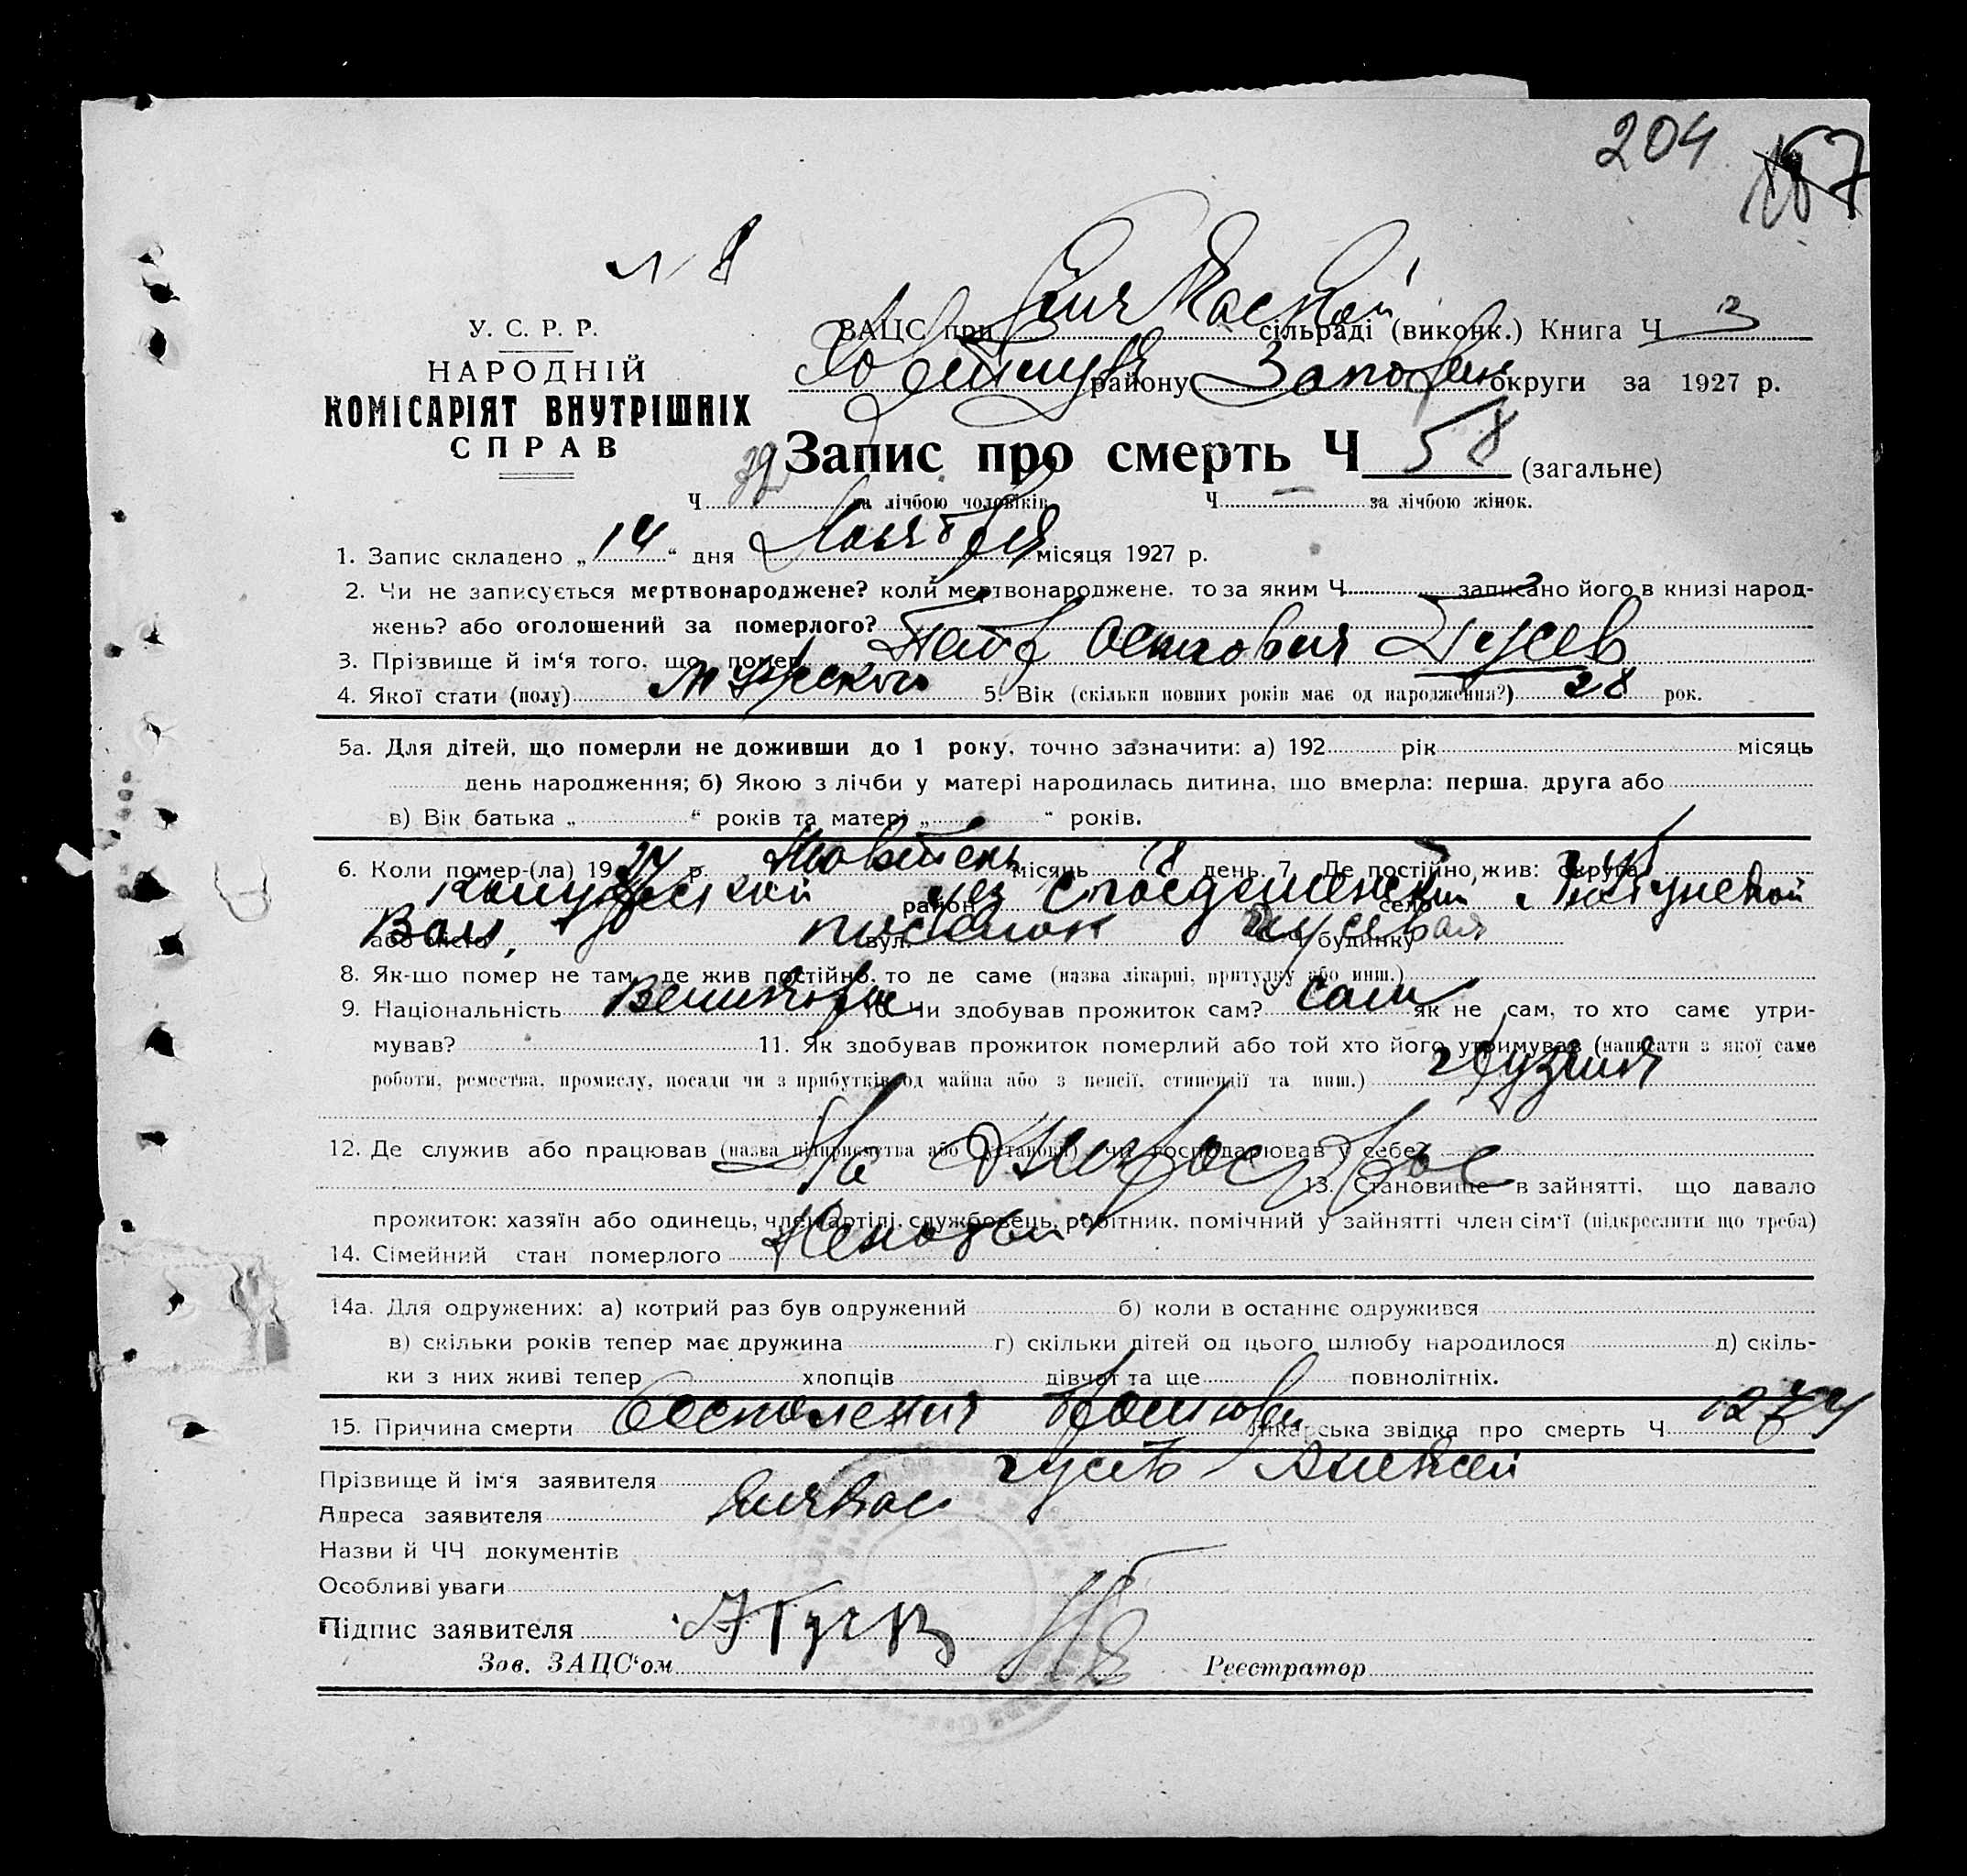 204 187
№ 8
У. С. Р. Р.
НАРОДНІЙ
КОМІСАРІЯТ ВНУТРІШНІХ
СПРАВ
ЗАЦС при сільраді (виконк.) Книга Ч 3
району округи за 1927 р.
Запис про смерть Ч 58 (загальне)
Ч за лічбою чоловіків Ч — за лічбою жінок.
1. Запис складено „14“ дня Ноября місяця 1927 р.
2. Чи не записується мертвонароджене? коли мертвонароджене, то за яким Ч записано його в книзі народ-
жень? або оголошений за померлого?
3. Прізвище й ім'я того, що помер Петр Осипович Гусев
4. Якої стати (полу) мужского 5. Вік (скільки повних років має од народження?) 28 рок.
5а. Для дітей, що померли не доживши до 1 року, точно зазначити: а) 192 рік місяць
день народження; б) Якою з лічби у матері народилась дитина, що вмерла: перша, друга або
в) Вік батька „ “ років та матері „ “ років.
6. Коли помер-(ла) 1927 р. місяць день 7. Де постійно жив: округа
Калужской район село
Вол, або місто вул. поселок будинку
8. Як-що помер не там, де жив постійно, то де саме (назва лікарні, притулку або инш.)
9. Національність Великорос 10. Чи здобував прожиток сам? сам як не сам, то хто саме утри-
мував? 11. Як здобував прожиток померлий або той хто його утримував (написати з якої саме
роботи, ремества, промислу, посади чи з прибутків од майна або з пенсії, стипендії та инш.)
12. Де служив або працював (назва підприємства або установи) чи господарював у себе? На Днепрострое
13. Становище в зайнятті, що давало
прожиток: хазяїн або одинець, член артілі, службовець, робітник, помічний у зайнятті член сім'ї (підкреслити що треба)
14. Сімейний стан померлого Холостой
14а. Для одружених: а) котрий раз був одружений б) коли в останнє одружився
в) скільки років тепер має дружина г) скільки дітей од цього шлюбу народилося д) скіль-
ки з них живі тепер хлопців дівчат та ще повнолітніх.
15. Причина смерти Воспаление Лікарська звідка про смерть Ч 1274
Прізвище й ім'я заявителя Гусев Алексей
Адреса заявителя Кичкас
Назви й ЧЧ документів
Особливі уваги
Підпис заявителя А Гусев
Зов. ЗАЦС'ом Реєстратор